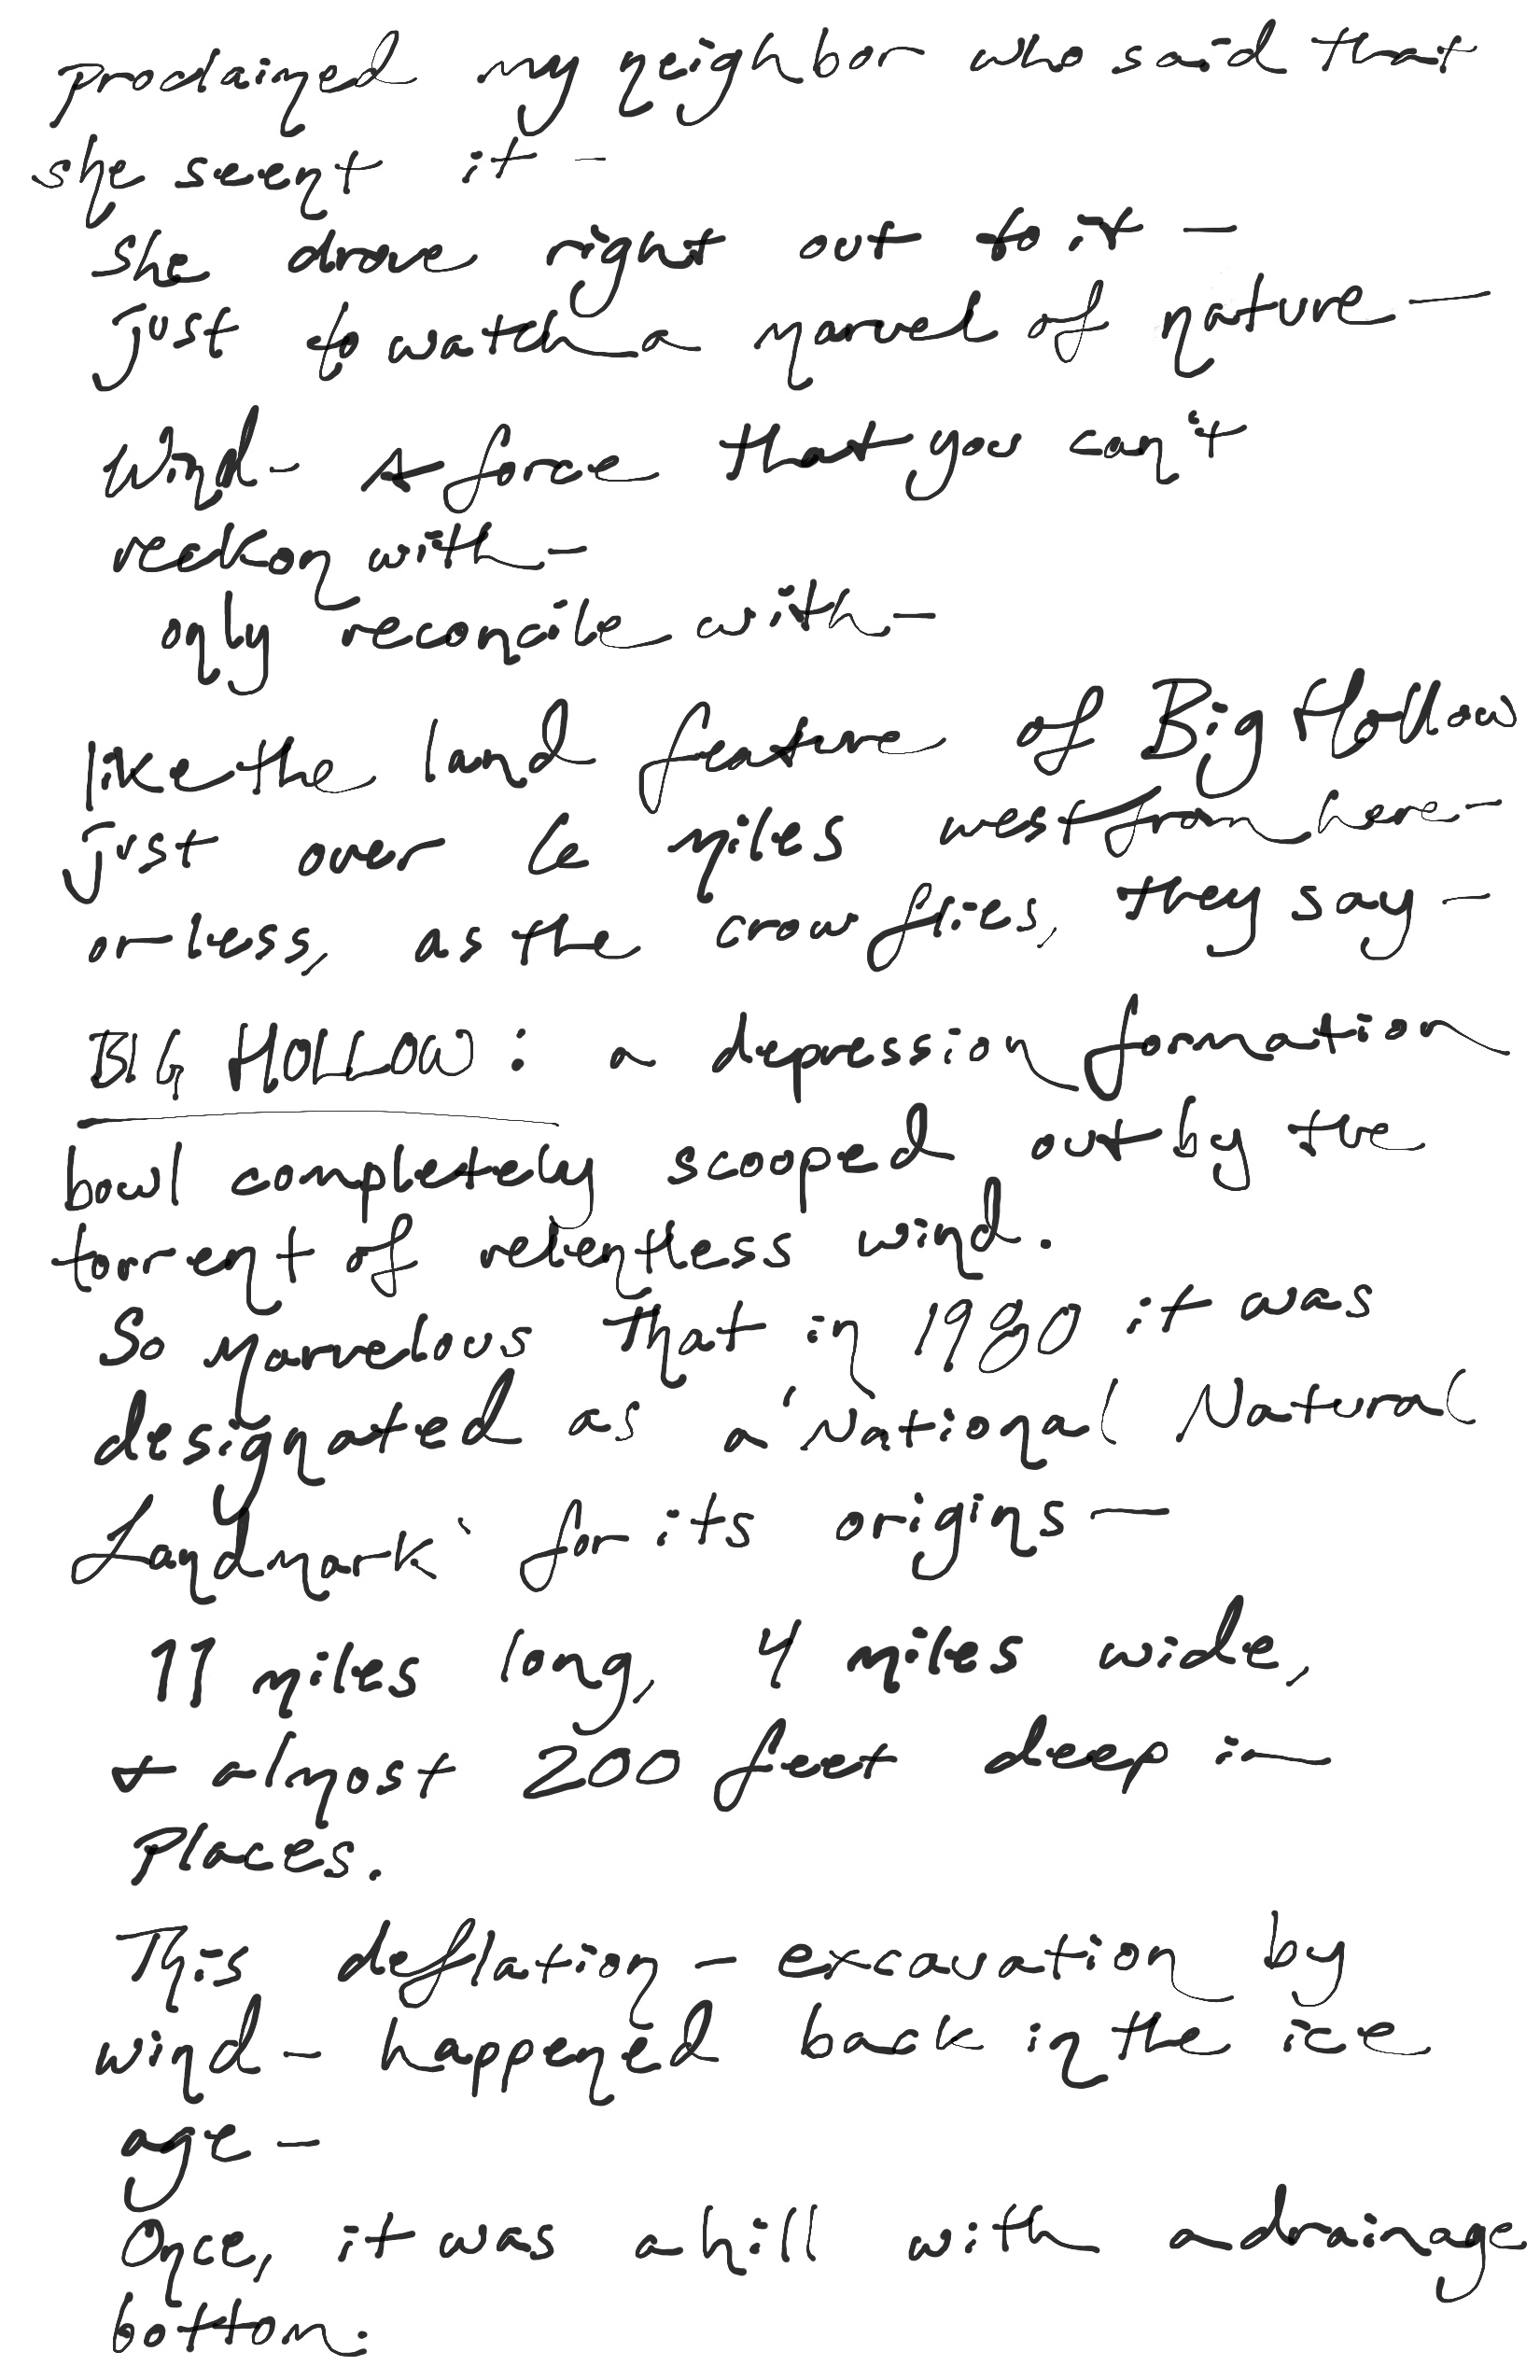 proclaimed my neighbor who said that
she seent it -
she drove right out to it -
just to watch a marvel of nature -
Wind - A force that you can't
reckon with -
only reconcile with -
like the land feature of Big Hollow
just over 6 miles west from here -
or less, as the crow flies, they say -
BIG HOLLOW: a depression formation
bowl completely scooped out by the
torrent of relentless wind.
So marvelous that in 1980 it was
designated as a 'National Natural
Landmark' for its origins -
11 miles long, 4 miles wide,
+ almost 200 feet deep in
Places.
This deflation - excavation by
wind - happened back in the ice
age -
Once, it was a hill with a drainage
bottom: